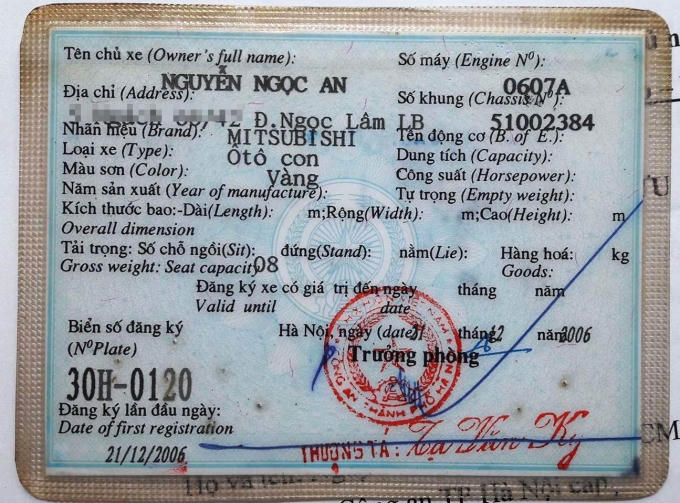 Tên chủ xe (Owner's full name):
Số máy (Engine Nº):
NGUYỄN NGỌC AN
0607A
Địa chỉ (Address):
Số khung (Chassis Nº):
Đ.Ngọc Lâm LB
51002384
Nhãn hiệu (Brand):
MITSUBISHI
Tên động cơ (B. of E.):
Loại xe (Type):
Ôtô con
Dung tích (Capacity):
Màu sơn (Color):
Vàng
Công suất (Horsepower):
Năm sản xuất (Year of manufacture):
Tự trọng (Empty weight):
Kích thước bao:-Dài(Length): m;Rộng(Width): m;Cao(Height): m
Overall dimension
Tải trọng: Số chỗ ngồi(Sit): đứng(Stand): nằm(Lie): Hàng hoá: kg
Gross weight: Seat capacity 08 Goods:
Đăng ký xe có giá trị đến ngày tháng năm
Valid until date
Biển số đăng ký
Hà Nội, ngày (date) 21 tháng 12 năm 2006
(NºPlate)
Trưởng phòng
30H-0120
Đăng ký lần đầu ngày:
Date of first registration
21/12/2006
THƯỢNG TÁ: Tạ Văn Kỵ
Họ và tên:
Công an TP Hà Nội cấp